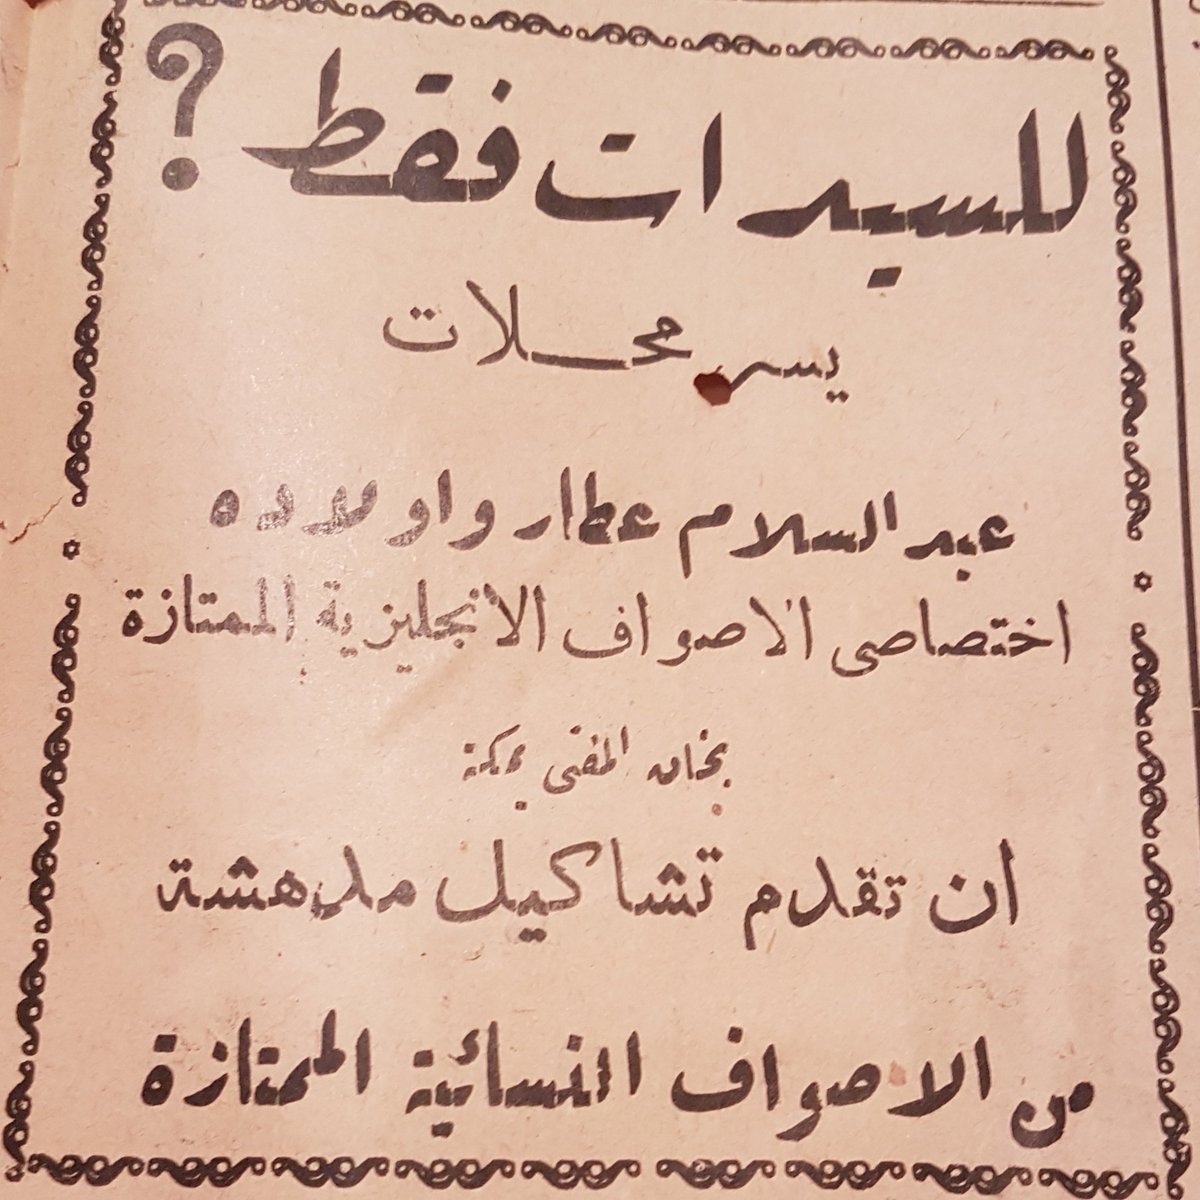 للسيدات فقط ?
يسر محلات
عبد السلام عطار واولاده
اختصاصى الاصواف الانجليزية الممتازة
بخان المفتى بمكة
ان تقدم تشاكيل مدهشة
من الاصواف النسائية الممتازة